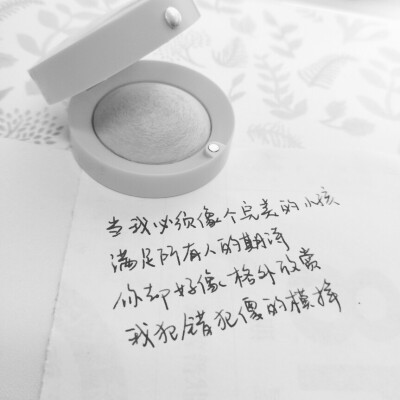 当我必须像个完美的小孩
满足所有人的期待
你却好像格外欣赏
我犯错犯傻的模样